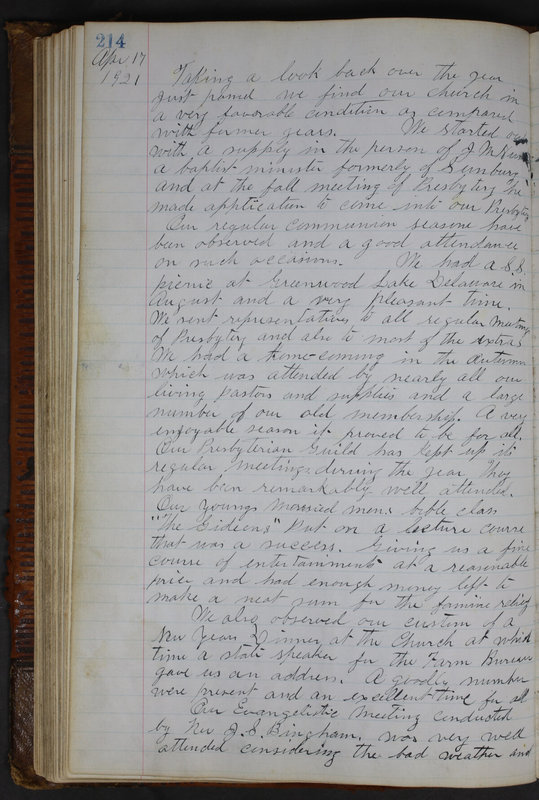 214
Apr 17
1921
Taking a look back over the year
just passed we find our church in
a very favorable condition as compared
with former years. We started out
with a supply in the person of J. M.
a baptist minister formerly of Sunbury
and at the fall meeting of Presbytery he
made application to come into our Presbytery
Our regular communion seasons have
been observed and a good attendance
on such occasions. We had a S.S.
picnic at Greenwood Lake Delaware in
August and a very pleasant time.
We sent representatives to all regular meetings
of Presbytery and also to most of the extras
We had a home-coming in the Autumn
which was attended by nearly all our
living pastors and supplies and a large
number of our old membership. A very
enjoyable season it proved to be for all.
Our Presbyterian Guild has kept up its
regular meetings during the year they
have been remarkably well attended.
Our Youngs Married mens bible class
"The Gideons" put on a lecture course
that was a success. Giving us a fine
course of entertainments at a reasonable
price and had enough money left to
make a neat sum for the famine relief
We also observed our custom of a
New Years Dinner at the Church at which
time a state speaker for the Farm Bureau
gave us an address. A goodly number
were present and an excellent time for all
Our Evangelistic Meeting conducted
by Rev J. S. Bingham, was very well
attended considering the bad weather and